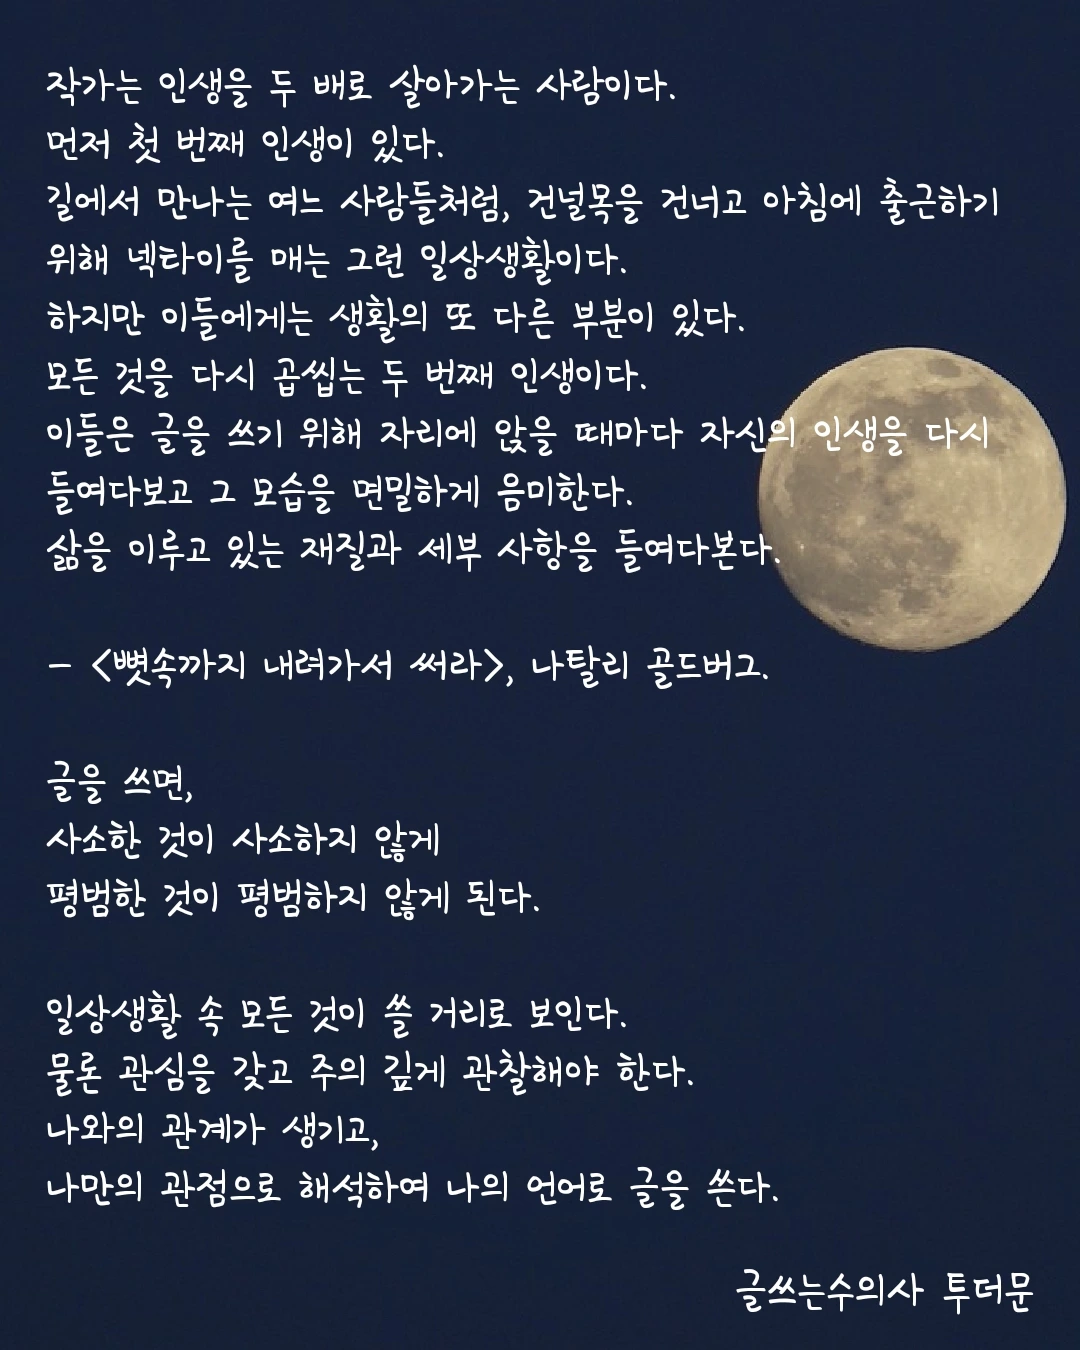 작가는 인생을 두 배로 살아가는 사람이다.
먼저 첫 번째 인생이 있다.
길에서 만나는 여느 사람들처럼, 건널목을 건너고 아침에 출근하기
위해 넥타이를 매는 그런 일상생활이다.
하지만 이들에게는 생활의 또 다른 부분이 있다.
모든 것을 다시 곱씹는 두 번째 인생이다.
이들은 글을 쓰기 위해 자리에 앉을 때마다 자신의 인생을 다시
들여다보고 그 모습을 면밀하게 음미한다.
삶을 이루고 있는 재질과 세부 사항을 들여다본다.
- <뼛속까지 내려가서 써라>, 나탈리 골드버그.
글을 쓰면,
사소한 것이 사소하지 않게
평범한 것이 평범하지 않게 된다.
일상생활 속 모든 것이 쓸 거리로 보인다.
물론 관심을 갖고 주의 깊게 관찰해야 한다.
나와의 관계가 생기고,
나만의 관점으로 해석하여 나의 언어로 글을 쓴다.
글쓰는수의사 투더문